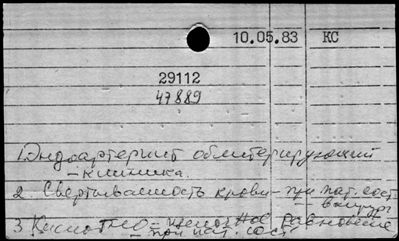 10.05.83 КС
29112
47889
1. Эндоартериит облитерирующий
- клиника.
2. Свертываемость крови - при пат. сост.
3. Кислотно-щелочное равновесие
- при пат. сост.